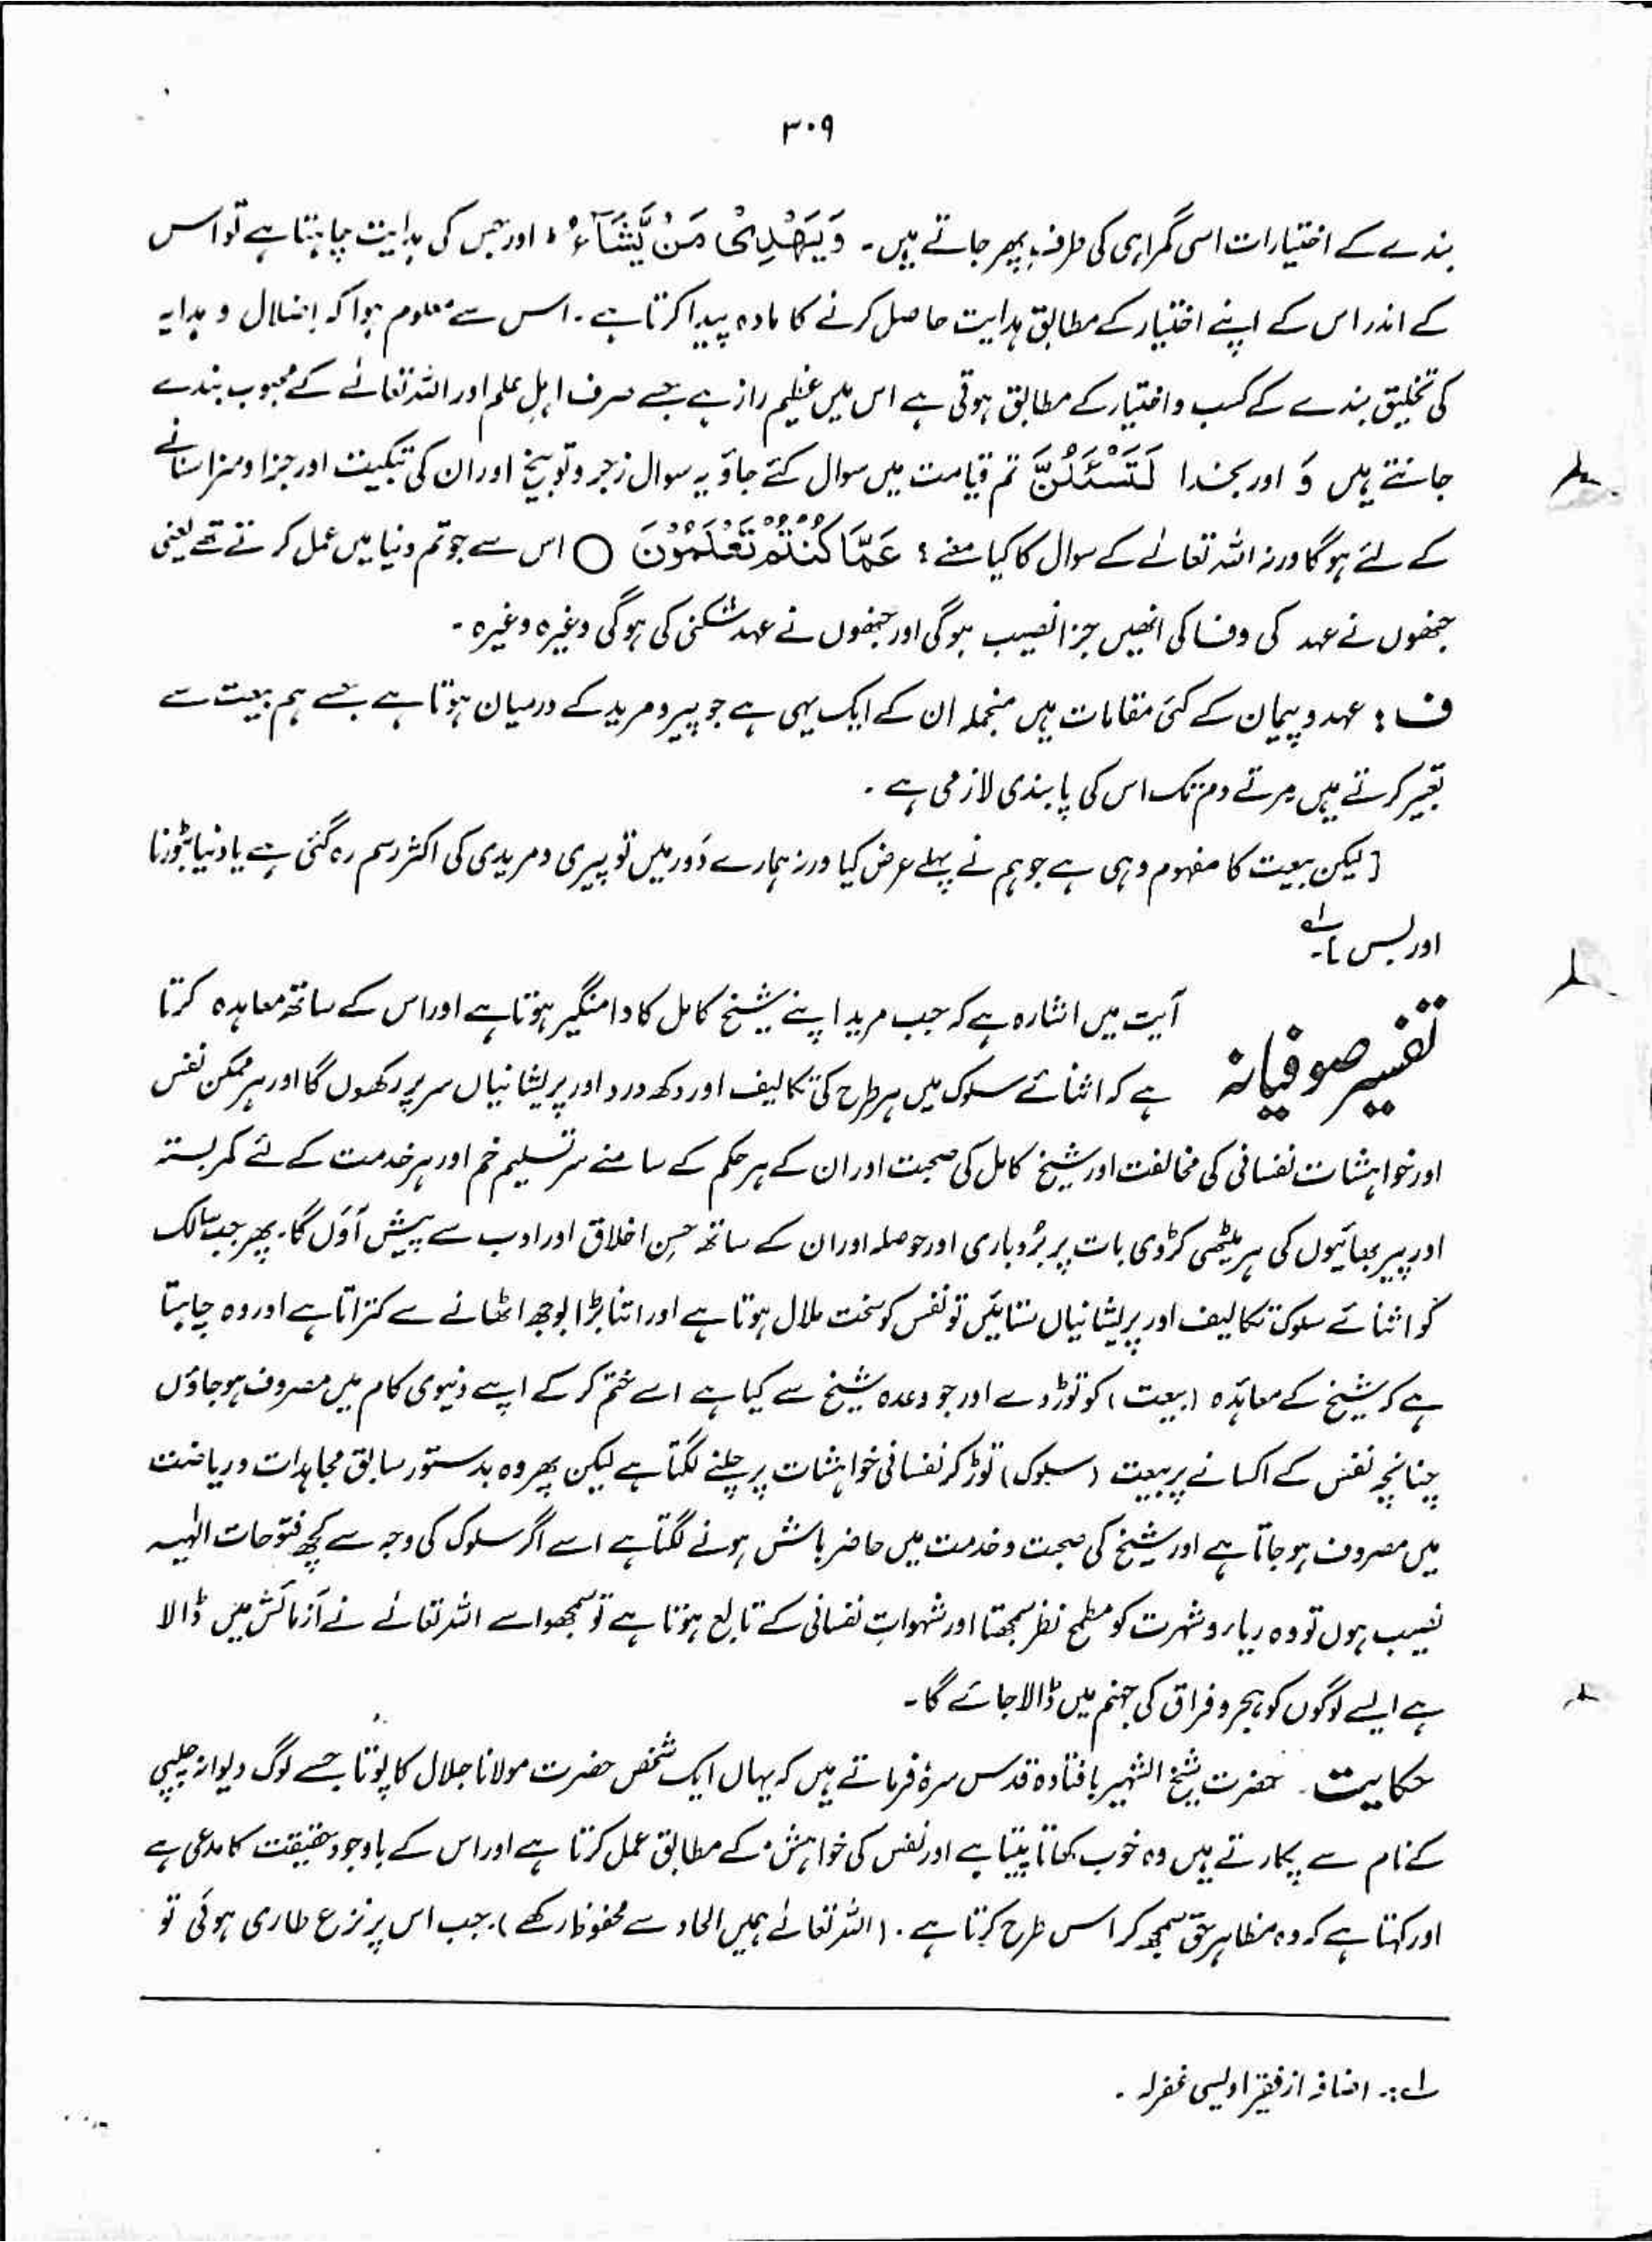 ۳۰۹
بندے کے اختیارات اسی گمراہی کی طرف پھر جاتے ہیں۔ وَيَهْدِىْ مَنْ يَّشَآءُ ؕ اور جس کی ہدایت چاہتا ہے تو اس
کے اندر اس کے اپنے اختیار کے مطابق ہدایت حاصل کرنے کا مادہ پیدا کرتا ہے۔ اس سے معلوم ہوا کہ اضلال و ہدایہ
کی تخلیق بندے کے کسب و اختیار کے مطابق ہوتی ہے اس میں عظیم راز ہے جسے صرف اہلِ علم اور اللہ تعالےٰ کے محبوب بندے
جانتے ہیں وَ اور بخدا لَتُسْئَلُنَّ تم قیامت میں سوال کئے جاؤ یہ سوال زجر و توبیخ اور ان کی تبکیت اور جزا و سزا سنانے
کے لئے ہوگا ورنہ اللہ تعالےٰ کے سوال کا کیا معنے ؛ عَمَّا كُنْتُمْ تَعْمَلُوْنَ ○ اس سے جو تم دنیا میں عمل کرتے تھے یعنی
جنھوں نے عہد کی وفا کی انھیں جزا نصیب ہوگی اور جنھوں نے عہد شکنی کی ہوگی وغیرہ وغیرہ ۔
ف : عہد و پیمان کے کئی مقامات ہیں منجملہ ان کے ایک یہی ہے جو پیر و مرید کے درمیان ہوتا ہے جسے ہم بیعت سے
تعبیر کرتے ہیں مرتے دم تک اس کی پابندی لازمی ہے ۔
[ لیکن بیعت کا مفہوم وہی ہے جو ہم نے پہلے عرض کیا ورنہ ہمارے دَور میں تو پیری و مریدی کی اکثر رسم رہ گئی ہے یا دنیا بٹورنا
اور بس ]۔ لہ
تفسیر صوفیانہ آیت میں اشارہ ہے کہ جب مرید اپنے شیخ کامل کا دامنگیر ہوتا ہے اور اس کے ساتھ معاہدہ کرتا
ہے کہ اثنائے سلوک میں ہر طرح کی تکالیف اور دکھ درد اور پریشانیاں سر پر رکھوں گا اور ہر ممکن نفس
اور خواہشات نفسانی کی مخالفت اور شیخ کامل کی صحبت اور ان کے ہر حکم کے سامنے سر تسلیم خم اور ہر خدمت کے لئے کمر بستہ
اور پیر بھائیوں کی ہر میٹھی کڑوی بات پر بُردباری اور حوصلہ اور ان کے ساتھ حسنِ اخلاق اور ادب سے پیش آؤں گا۔ پھر جب سالک
کو اثنائے سلوک تکالیف اور پریشانیاں ستائیں تو نفس کو سخت ملال ہوتا ہے اور اتنا بڑا بوجھ اٹھانے سے کتراتا ہے اور وہ چاہتا
ہے کہ شیخ کے معاہدہ (بیعت) کو توڑ دے اور جو وعدہ شیخ سے کیا ہے اسے ختم کر کے اپنے دنیوی کام میں مصروف ہو جاؤں
چنانچہ نفس کے اکسانے پر بیعت (سلوک) توڑ کر نفسانی خواہشات پر چلنے لگتا ہے لیکن پھر وہ بدستور سابق مجاہدات و ریاضت
میں مصروف ہو جاتا ہے اور شیخ کی صحبت و خدمت میں حاضر باش ہونے لگتا ہے اسے اگر سلوک کی وجہ سے کچھ فتوحات الٰہیہ
نصیب ہوں تو وہ ریاء و شہرت کو مطمحِ نظر سمجھتا اور شہواتِ نفسانی کے تابع ہوتا ہے تو سمجھو اسے اللہ تعالےٰ نے آزمائش میں ڈالا
ہے ایسے لوگوں کو ہجر و فراق کی جہنم میں ڈالا جائے گا۔
حکایت ۔ حضرت شیخ الشہیر بافتادہ قدس سرہٗ فرماتے ہیں کہ یہاں ایک شخص حضرت مولانا جلال کا پوتا جسے لوگ دیوانہ چلپی
کے نام سے پکارتے ہیں وہ خوب کھاتا پیتا ہے اور نفس کی خواہش کے مطابق عمل کرتا ہے اور اس کے باوجود حقیقت کا مدعی ہے
اور کہتا ہے کہ وہ مظاہر حق سمجھ کر اس طرح کرتا ہے ۔ (اللہ تعالےٰ ہمیں الحاد سے محفوظ رکھے) ۔ جب اس پر نزع طاری ہوئی تو
لہ :۔ اضافہ از فقیر اویسی غفرلہ ۔